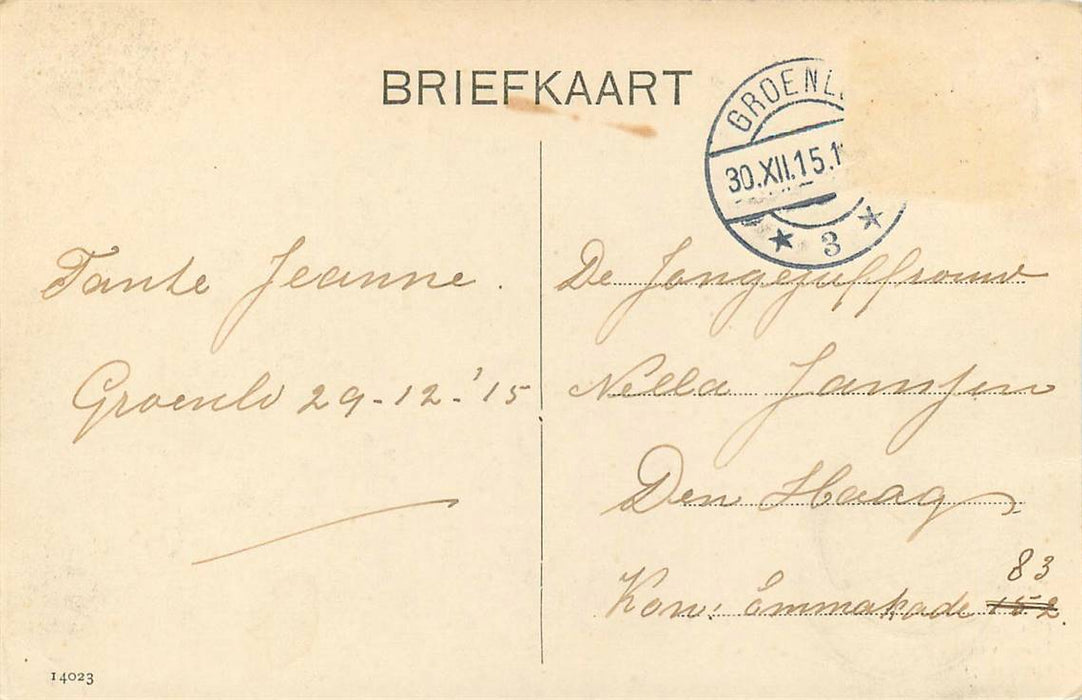 BRIEFKAART
GROENL
30.XII.15.1
3
Tante Jeanne.
Groenlo 29-12-'15
De Jongejuffrouw
Nella Jansen
Den Haag
83
Kon: Emmakade 152.
14023